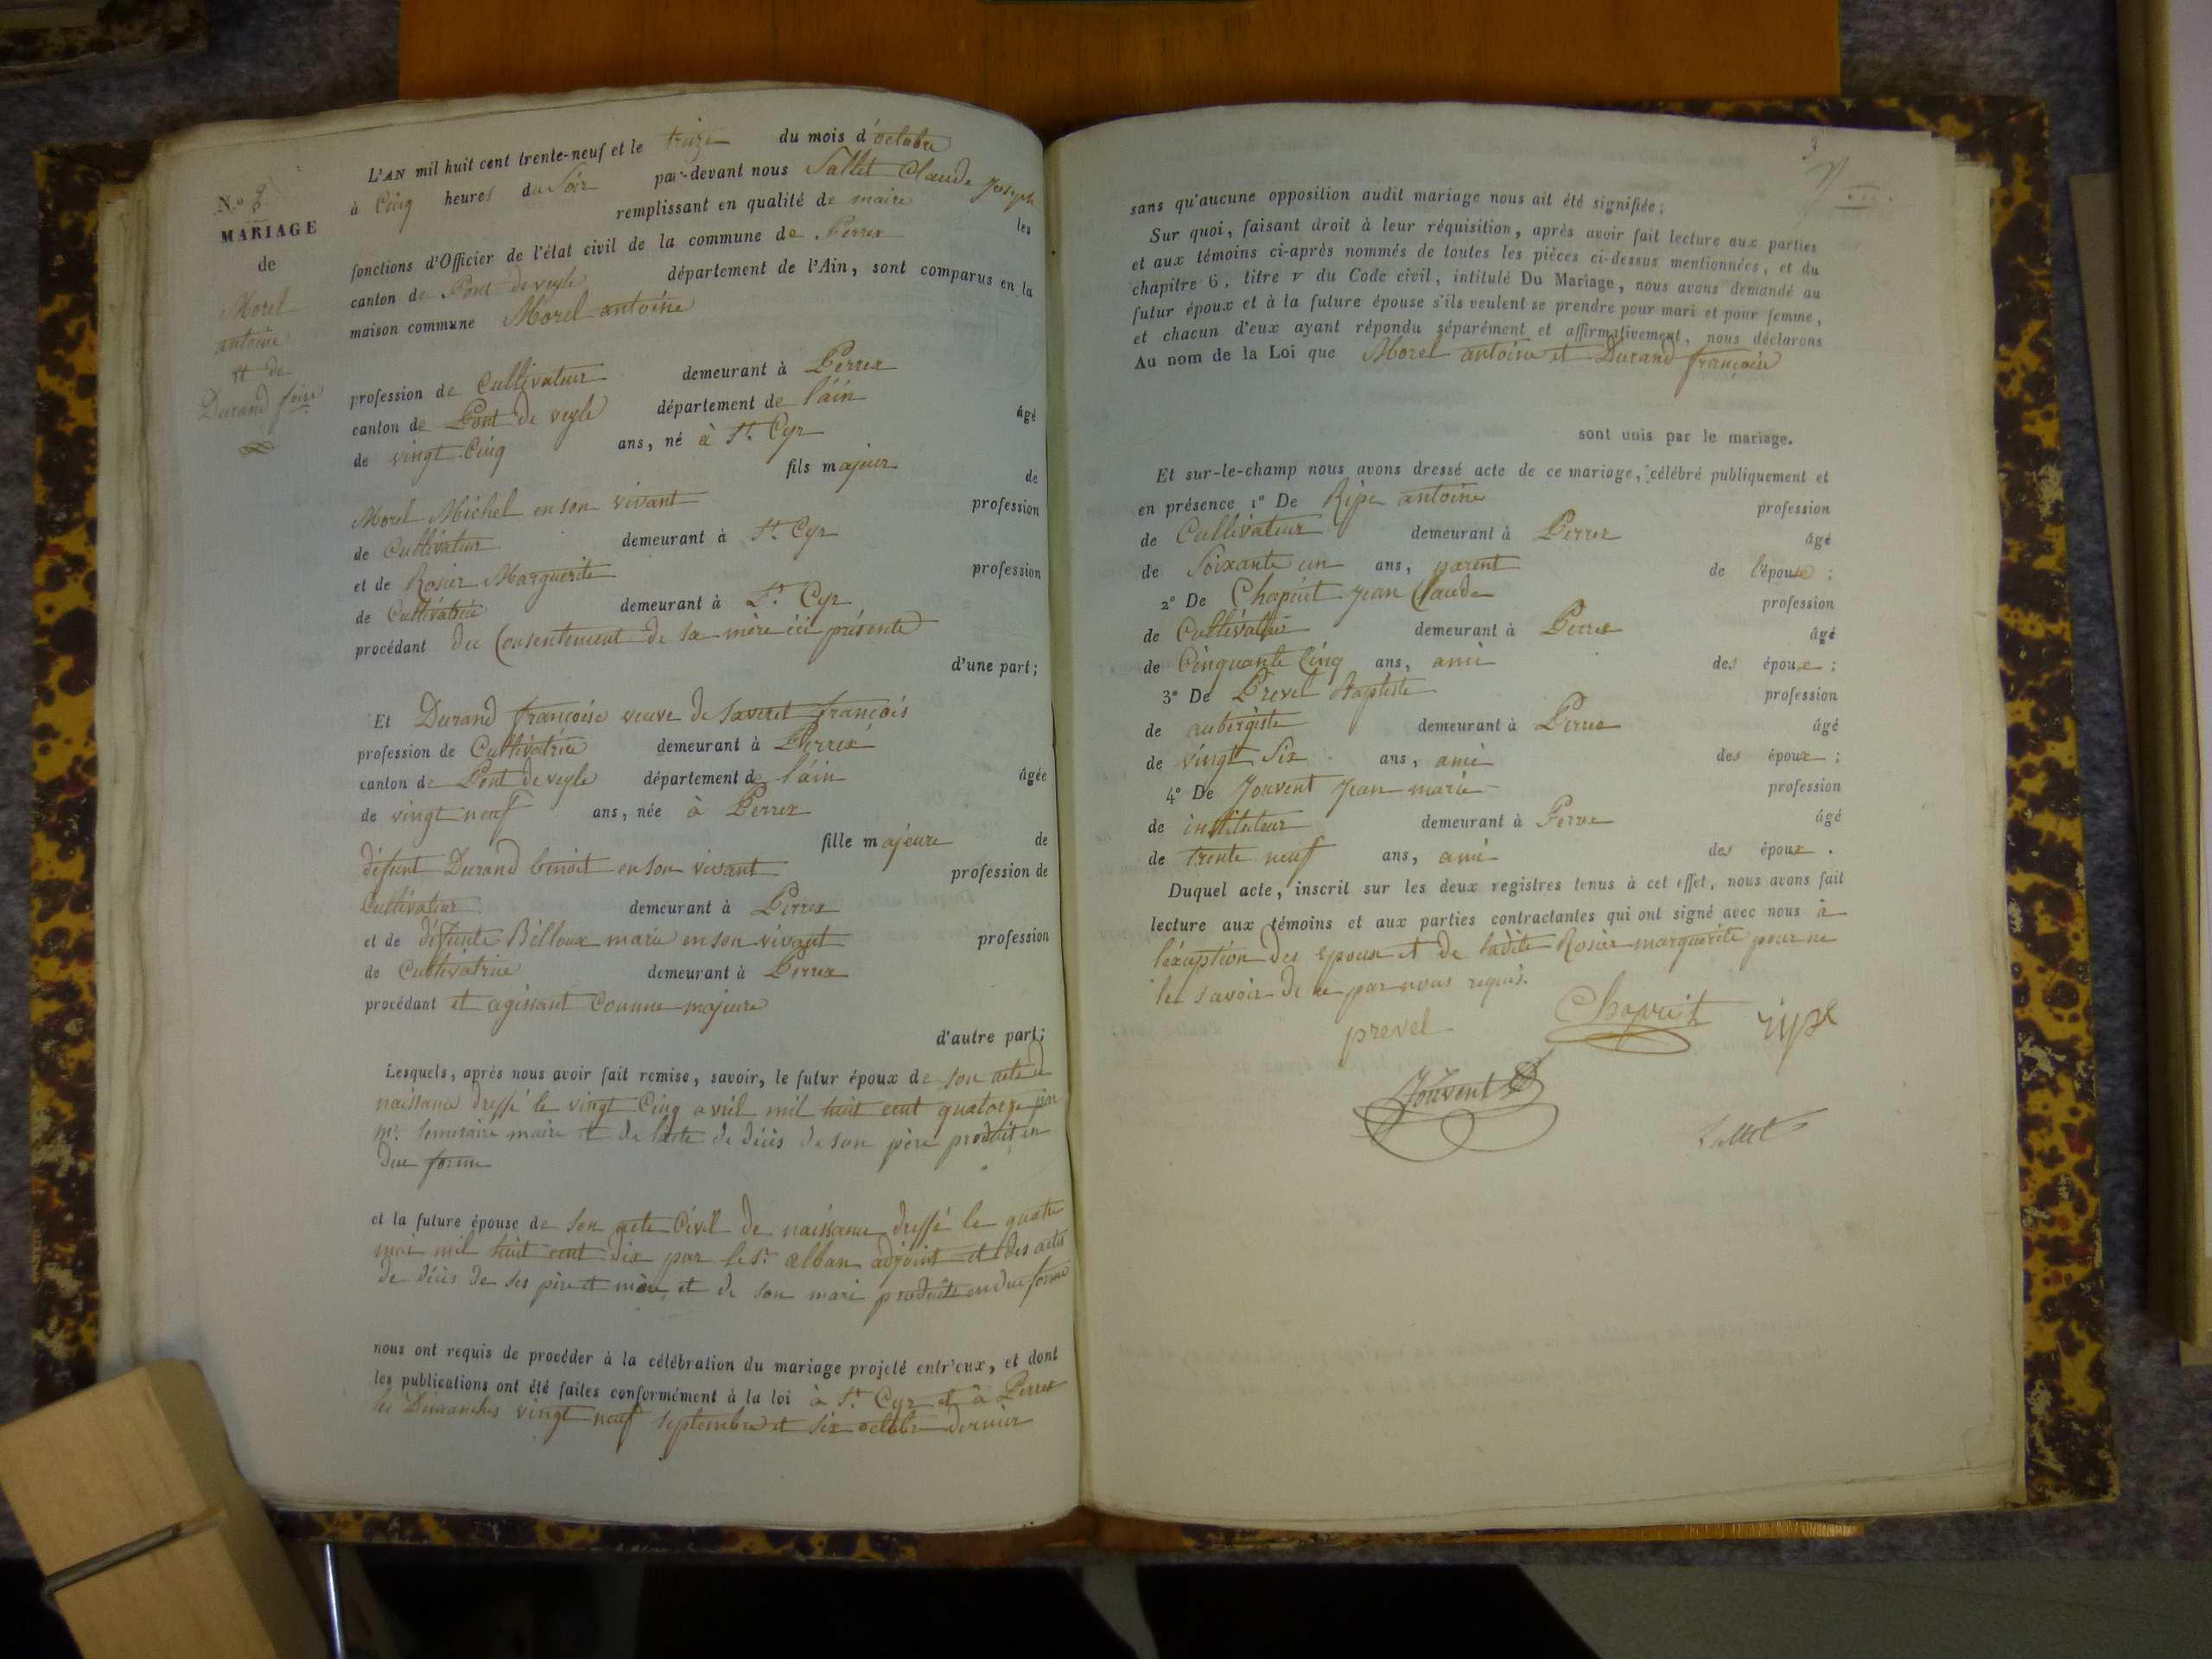 N.° 8
MARIAGE
de
Morel
antoine
et de
Durand f.oise
L'AN mil huit cent trente-neuf et le treize du mois d'octobre
à Cinq heures du Soir par-devant nous Sallet Claude Joseph
remplissant en qualité de maire les
fonctions d'Officier de l'état civil de la commune de Perrex
canton de Pont de veyle département de l'Ain, sont comparus en la
maison commune Morel antoine
profession de Cultivateur demeurant à Perrex
canton de Pont de veyle département de l'ain âgé
de vingt-Cinq ans, né à St. Cyr
fils majeur de
Morel Michel en son vivant profession
de Cultivateur demeurant à St. Cyr
et de Rosier Marguerite profession
de Cultivatrice demeurant à St. Cyr
procédant du Consentement de sa mère ici présente
d'une part;
Et Durand françoise veuve de Saveret françois
profession de Cultivatrice demeurant à Perrex
canton de Pont de veyle département de l'ain âgée
de vingt neuf ans, née à Perrex
fille majeure de
défunt Durand benoit en son vivant profession de
Cultivateur demeurant à Perrex
et de défunte Billoux marie en son vivant profession
de Cultivatrice demeurant à Perrex
procédant et agissant Comme majeure
d'autre part;
Lesquels, après nous avoir fait remise, savoir, le futur époux de son acte de
naissance dressé le vingt Cinq avril mil huit cent quatorze par
mr. temeraire maire et de l'acte de décès de son père produit en
due forme
et la future épouse de son acte Civil de naissance dressé le quatre
mai mil huit cent dix par le sr. alban adjoint et des actes
de décès de ses père et mère, et de son mari produits en due forme
nous ont requis de procéder à la célébration du mariage projeté entr'eux, et dont
les publications ont été faites conformément à la loi à St. Cyr et à Perrex
les Dimanches vingt neuf septembre et six octobre dernier
3
sans qu'aucune opposition audit mariage nous ait été signifiée;
Sur quoi, faisant droit à leur réquisition, après avoir fait lecture aux parties
et aux témoins ci-après nommés de toutes les pièces ci-dessus mentionnées, et du
chapitre 6, titre v du Code civil, intitulé Du Mariage, nous avons demandé au
futur époux et à la future épouse s'ils veulent se prendre pour mari et pour femme,
et chacun d'eux ayant répondu séparément et affirmativement, nous déclarons
Au nom de la Loi que Morel antoine et Durand françoise
sont unis par le mariage.
Et sur-le-champ nous avons dressé acte de ce mariage, célébré publiquement et
en présence 1° De Ripe antoine profession
de Cultivateur demeurant à Perrex âgé
de Soixante un ans, parent de l'épouse ;
2° De Chapuit Jean Claude profession
de Cultivateur demeurant à Perrex âgé
de Cinquante Cinq ans, ami des époux ;
3° De Prevel Baptiste profession
de aubergiste demeurant à Perrex âgé
de vingt Six ans, ami des époux ;
4° De Jouvent Jean marie profession
de instituteur demeurant à Perrex âgé
de trente neuf ans, ami des époux .
Duquel acte, inscrit sur les deux registres tenus à cet effet, nous avons fait
lecture aux témoins et aux parties contractantes qui ont signé avec nous à
l'exception des epoux et de ladite Rosier marguerite pour ne
le savoir de ce par nous requis.
prevel Chapuit ripe
Jouvent
Sallet